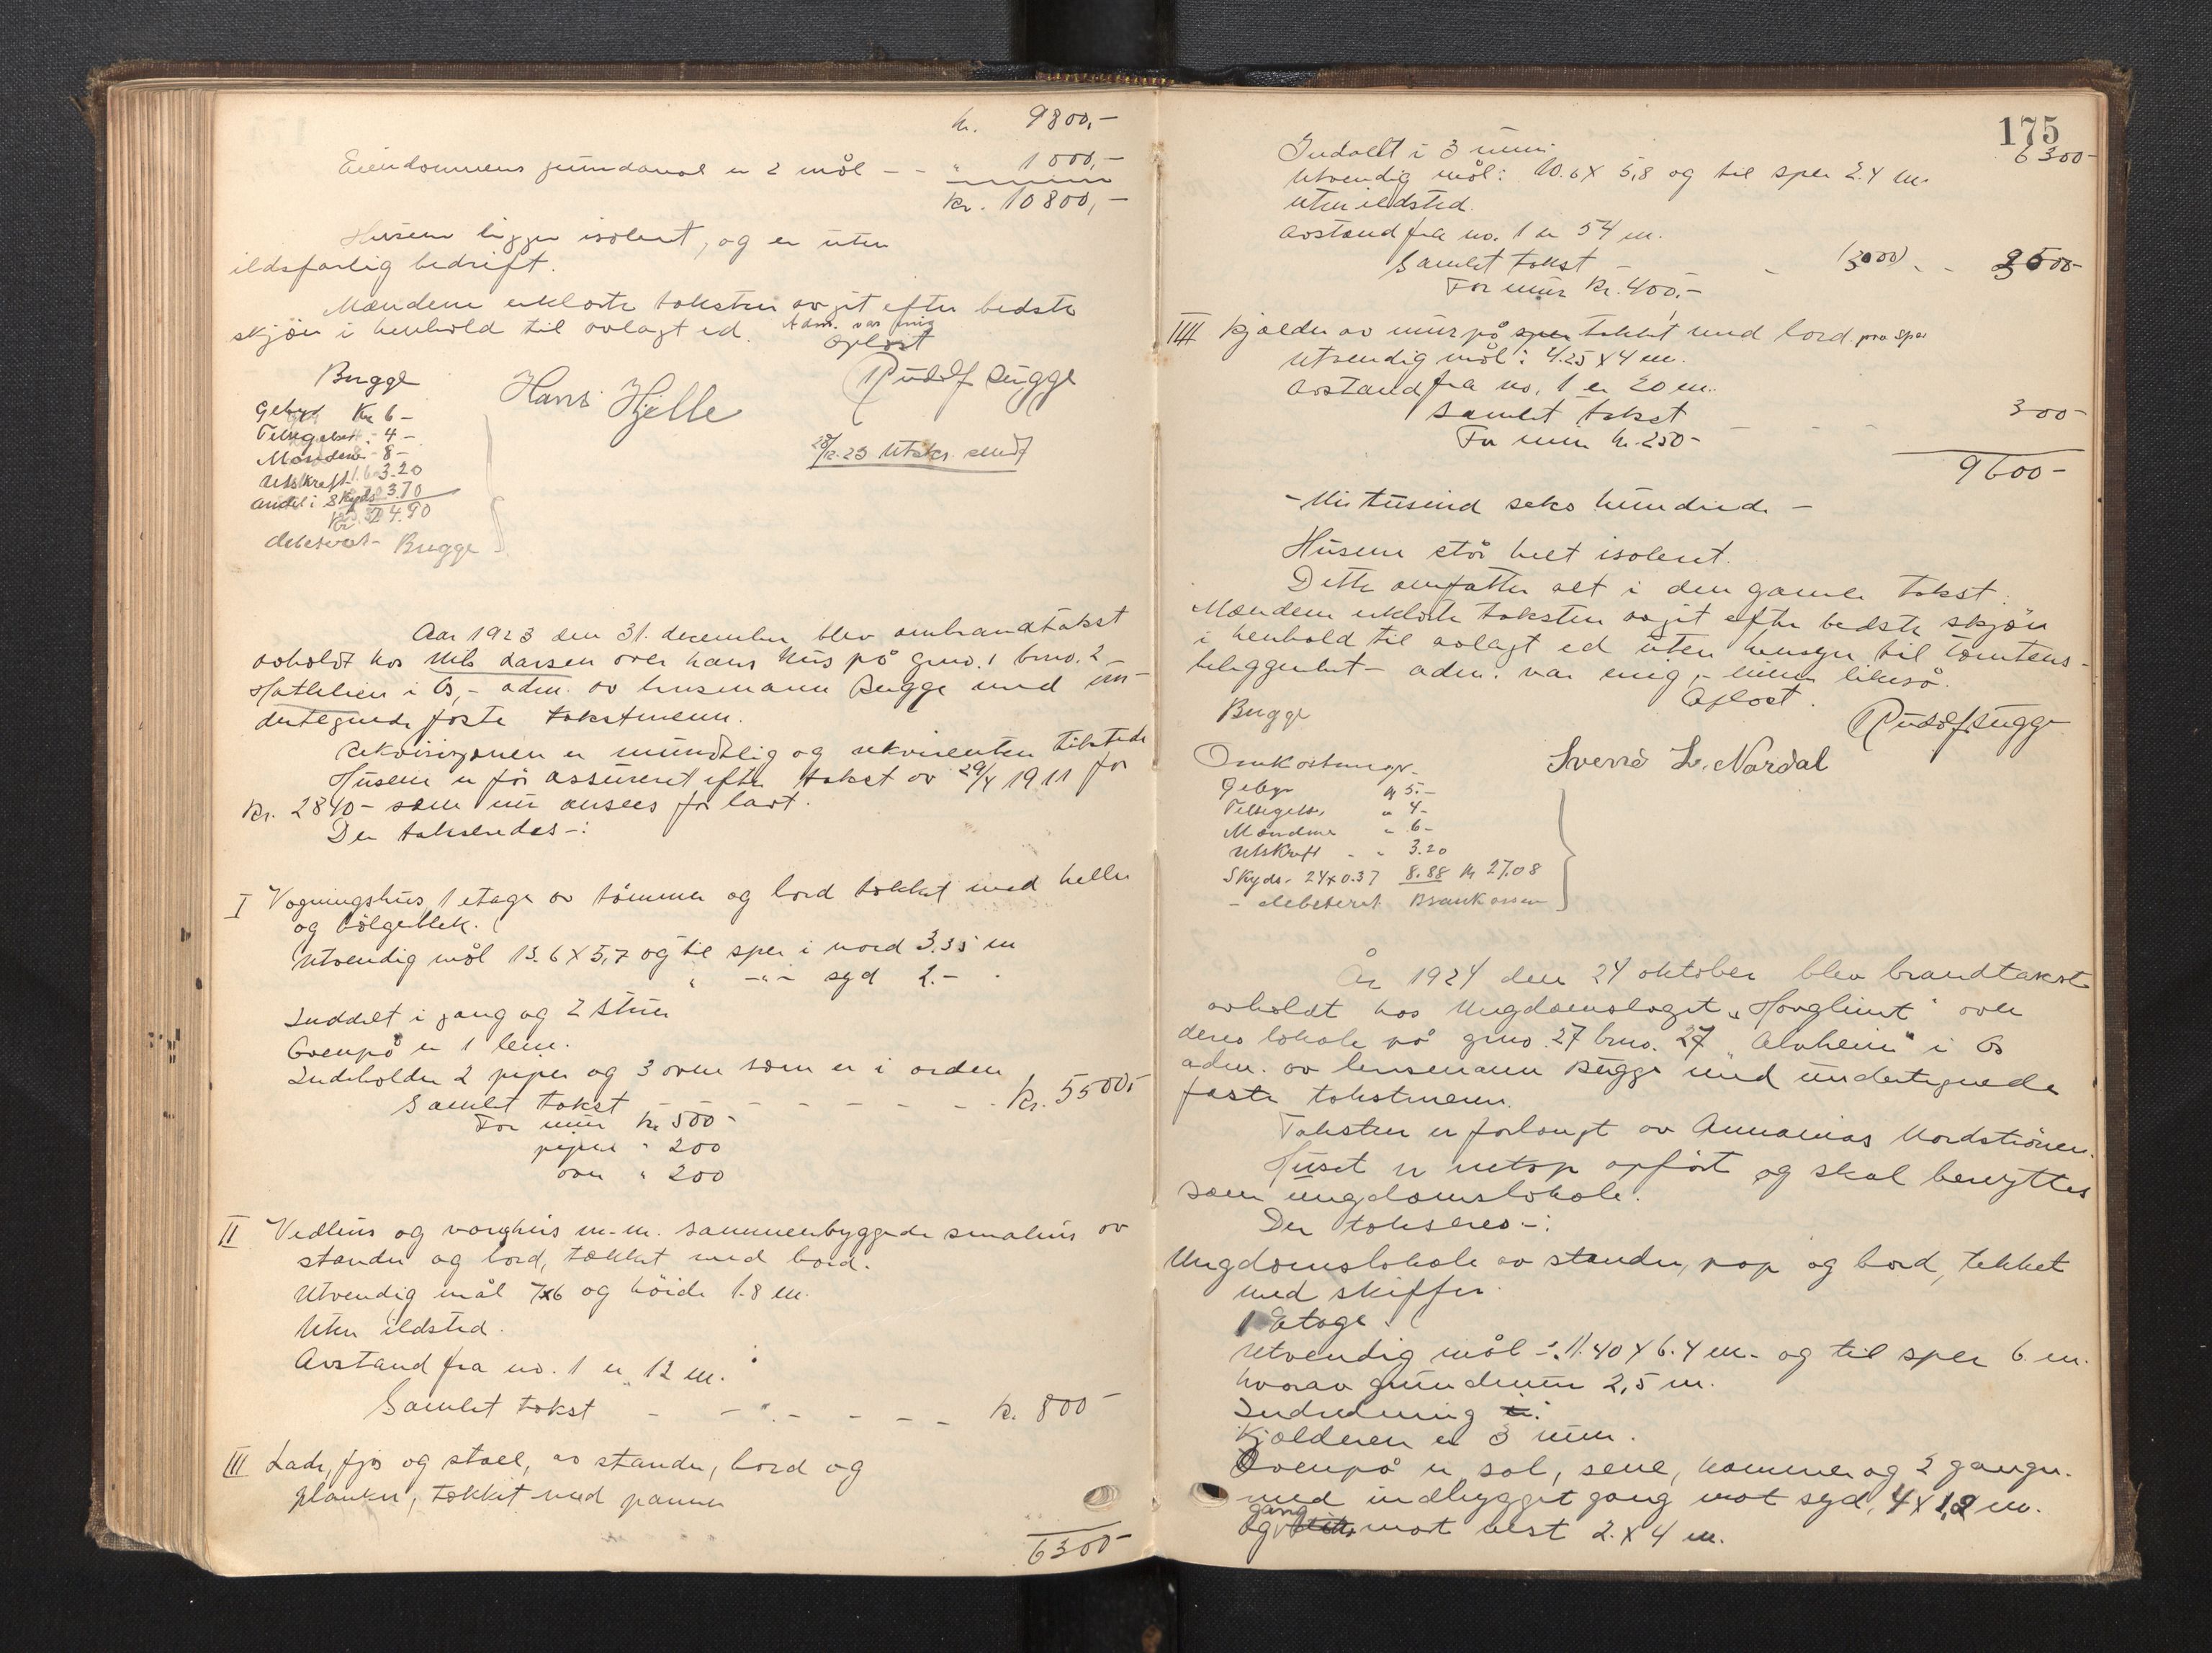 kr. 9800,-
Eiendommens jumdaval er 2 mål - - " 1000,-
kr. 10800,-
Husene ligger isolert, og er uten
ildsfarlig bedrift.
Mændene erklærte taksten avgit efter bedste
skjön i henhold til avlagt ed. Adm. var enig
Oplæst
Bugge
Hans Hjelle
Rudolf Bugge
Gebyr Kr 6-
Tilsigelse " 4-
Mændene - 8-
Utskrift 1.6 3.20
Andel i Skyds 3.70
Kr 24.90
debeteret - Bugge
28/12.23 Utskr. sendt
Aar 1923 den 31. december blev ombrandtakst
avholdt hos Nils Larsen over hans hus på gno. 1 bno. 2
Hatlelien i Os, - adm. av lensmann Bugge med un-
dertegnede faste takstmenn.
Rekvisisjonen er mundtlig og rekvirenten tilstede
Husene er før assureret efter takst av 29/4 1911 for
kr. 2840- som nu ansees for lavt.
Der takseredes -:
I Vaaningshus 1 etage av tømmer og bord tekket med heller
og bölgeblek.
Utvendig mål 13.6 x 5,7 og til sper i nord 3.35 m
" -"- syd 2.- "
Inddelt i gang og 2 stuer
Ovenpå er 1 lem.
Indeholder 2 piper og 3 ovne som er i orden
Samlet takst - - - - - - - - kr. 5500,-
For mur kr 500-
piper " 200
ovn " 200
II Vedhus og vonghus m.m. sammenbyggede smahus av
stander og bord, tækket med bord.
Utvendig mål 7x6 og höide 1.8 m.
Uten ildsted.
Avstand fra no. 1 er 12 m.
Samlet takst - - - - - - kr. 800-
III Lade, fjös og stall, av stander, bord og
planker, tækket med panner
6300-
175
6300-
Inddelt i 3 rum.
Utvendig mål: 10.6 x 5,8 og til sper 2.4 m.
uten ildsted.
Avstand fra no. 1 er 54 m.
Samlet takst - - (3000) - - 3000-
For mur kr. 400,-
IIII Kjælder av mur på sper tekket med bord.
Utvendig mål: 4.25 x 4 m.
Avstand fra no. 1 er 20 m.
Samlet takst - - - 300-
For mur kr. 250-
9600-
- Nitusend seks hundrede -
Husene står helt isolert.
Dette omfatter alt i den gamle takst.
Mændene erklærte taksten avgit efter bedste skjön
i henhold til avlagt ed uten hensyn til tomtens
beliggenhet - adm. var enig, - likeså.
Oplæst.
Bugge
Rudolf Bugge
Sverre L. Nordal
Omkostninger.
Gebyr kr 5.-
Tilsigelse " 4-
Mændene " 6-
Utskrift - " 3.20
Skyds - 24x0.37 8.88 kr 27.08
- debeteret Brankassen
År 1924 den 24 oktober blev brandtakst
avholdt hos Ungdomslaget "Hauglimt" over
deres lokale på gno. 27 bno. 27 "Alvheim" i Os
adm. av lensmann Bugge med undertegnede
faste takstmenn.
Taksten er forlangt av Annanias Nordströnen.
Huset er netop opfört og skal benyttes
som ungdomslokale.
Der takseres -:
Ungdomslokale av stander, pap og bord, tekket
med skiffer.
1 Etage.
Utvendig mål -: 11.40 x 6.4 m. og til sper 6 m.
hvorav grundmur 2,5 m.
Indredning :
Kjælderen er 3 rum.
Ovenpå er sal, scene, kammer og 2 ganger.
med indbygget gang mot syd, 4 x 1,2 m.
og gang mot vest 2. x 4 m.